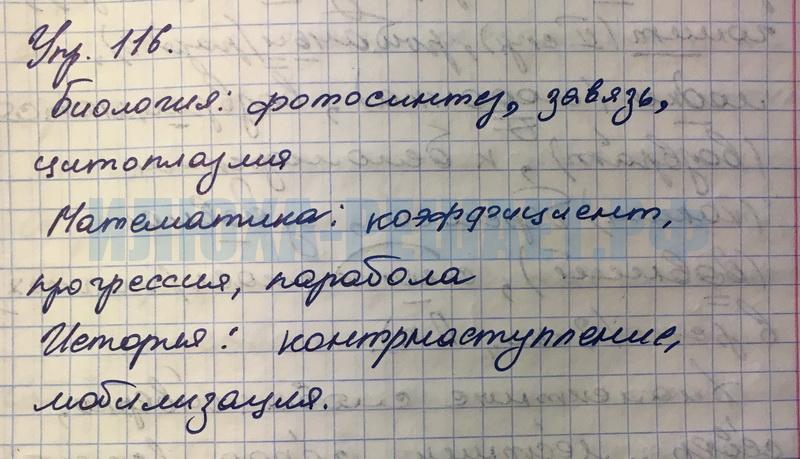 Упр. 116.
Биология: фотосинтез, завязь,
цитоплазмия
Математика: коэффициент,
прогрессия, парабола
История: контрнаступление,
мобилизация.